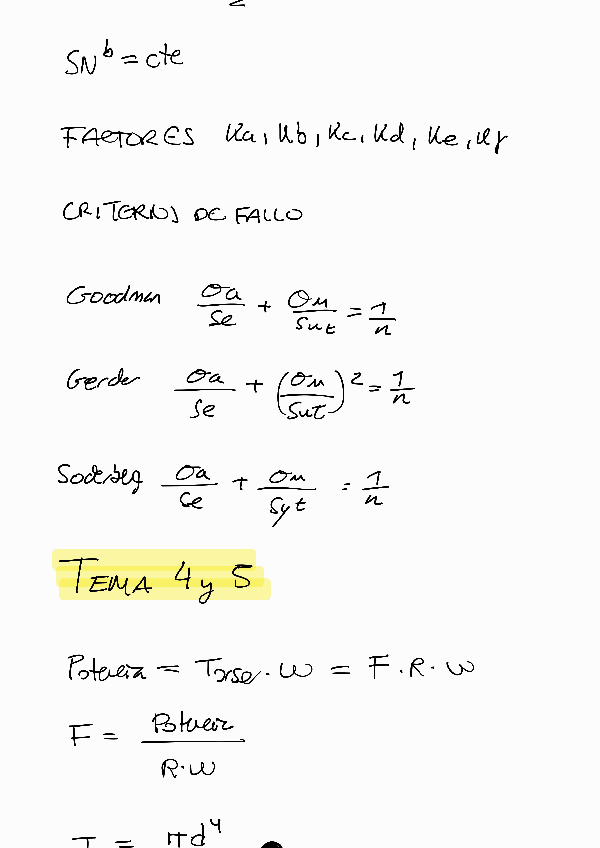 2
SN^b = cte
FACTORES Ka, Kb, Kc, Kd, Ke, Kf
CRITERIOS DE FALLO
Goodman σa/Se + σm/Sut = 1/n
Gerder σa/Se + (σm/Sut)^2 = 1/n
Soderberg σa/Se + σm/Syt = 1/n
TEMA 4 y 5
Potencia = Torsor · W = F · R · W
F = Potencia / R·W
I = πd^4